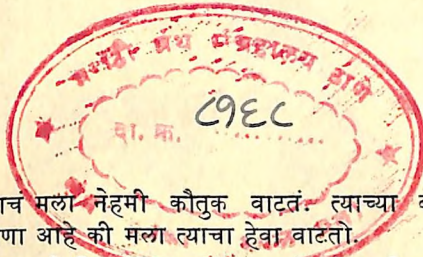 मराठी ग्रंथ संग्रहालय ठाणे
दा. क्र. ८१६८
चं मला नेहमी कौतुक वाटतं. त्याच्या
णा आहे की मला त्याचा हेवा वाटतो.